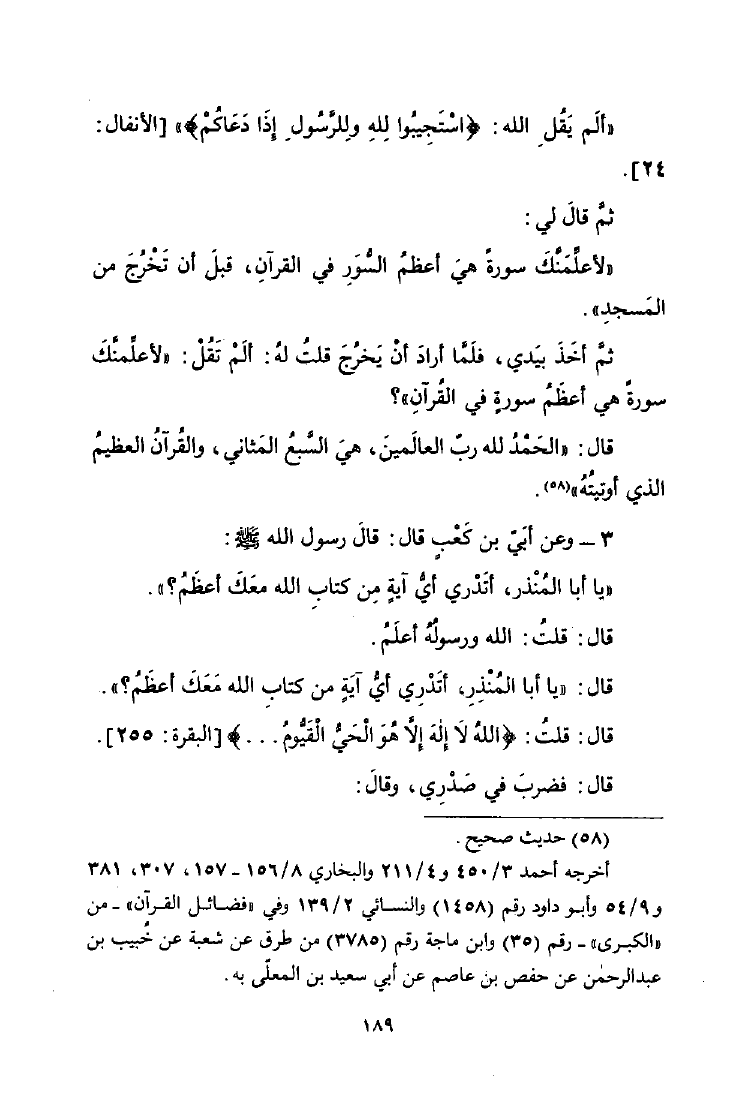 «ألَم يَقُلِ الله: ﴿اسْتَجِيبُوا لِلهِ ولِلرَّسُولِ إِذَا دَعَاكُمْ﴾» [الأنفال:
٢٤].
ثمَّ قالَ لي:
«لأعلِّمَنَّكَ سورةً هيَ أعظمُ السُّوَرِ في القرآنِ، قبلَ أن تَخْرُجَ من
المَسجدِ».
ثمَّ أخَذَ بيَدي، فلَمَّا أرادَ أنْ يَخرُجَ قلتُ لهُ: ألَمْ تَقُلْ: «لأعلِّمنَّكَ
سورةً هي أعظَمُ سورةٍ في القُرآنِ»؟
قال: «الحَمْدُ لله ربّ العالَمينَ، هيَ السَّبعُ المَثاني، والقُرآنُ العظيمُ
الذي أوتيتُهُ»(٥٨).
٣ ـ وعن أُبَيّ بن كَعْبٍ قال: قالَ رسول الله ﷺ:
«يا أبا المُنْذر، أتَدْري أيُّ آيةٍ مِن كتابِ الله معَكَ أعظَمُ؟».
قال: قلتُ: الله ورسولُهُ أعلَمُ.
قال: «يا أبا المُنْذِرِ، أتَدْرِي أيُّ آيَةٍ من كتابِ الله مَعَكَ أعظَمُ؟».
قال: قلتُ: ﴿اللهُ لَا إِلٰهَ إِلَّا هُوَ الْحَيُّ الْقَيُّومُ . . .﴾ [البقرة: ٢٥٥].
قال: فضربَ في صَدْرِي، وقالَ:
(٥٨) حديث صحيح.
أخرجه أحمد ٤٥٠/٣ و٢١١/٤ والبخاري ١٥٦/٨ ـ ١٥٧، ٣٠٧، ٣٨١
و٥٤/٩ وأبو داود رقم (١٤٥٨) والنسائي ١٣٩/٢ وفي «فضائل القرآن» ـ من
«الكبرى» ـ رقم (٣٥) وابن ماجة رقم (٣٧٨٥) من طرق عن شعبة عن خُبيب بن
عبدالرحمٰن عن حفص بن عاصم عن أبي سعيد بن المعلّى به.
١٨٩